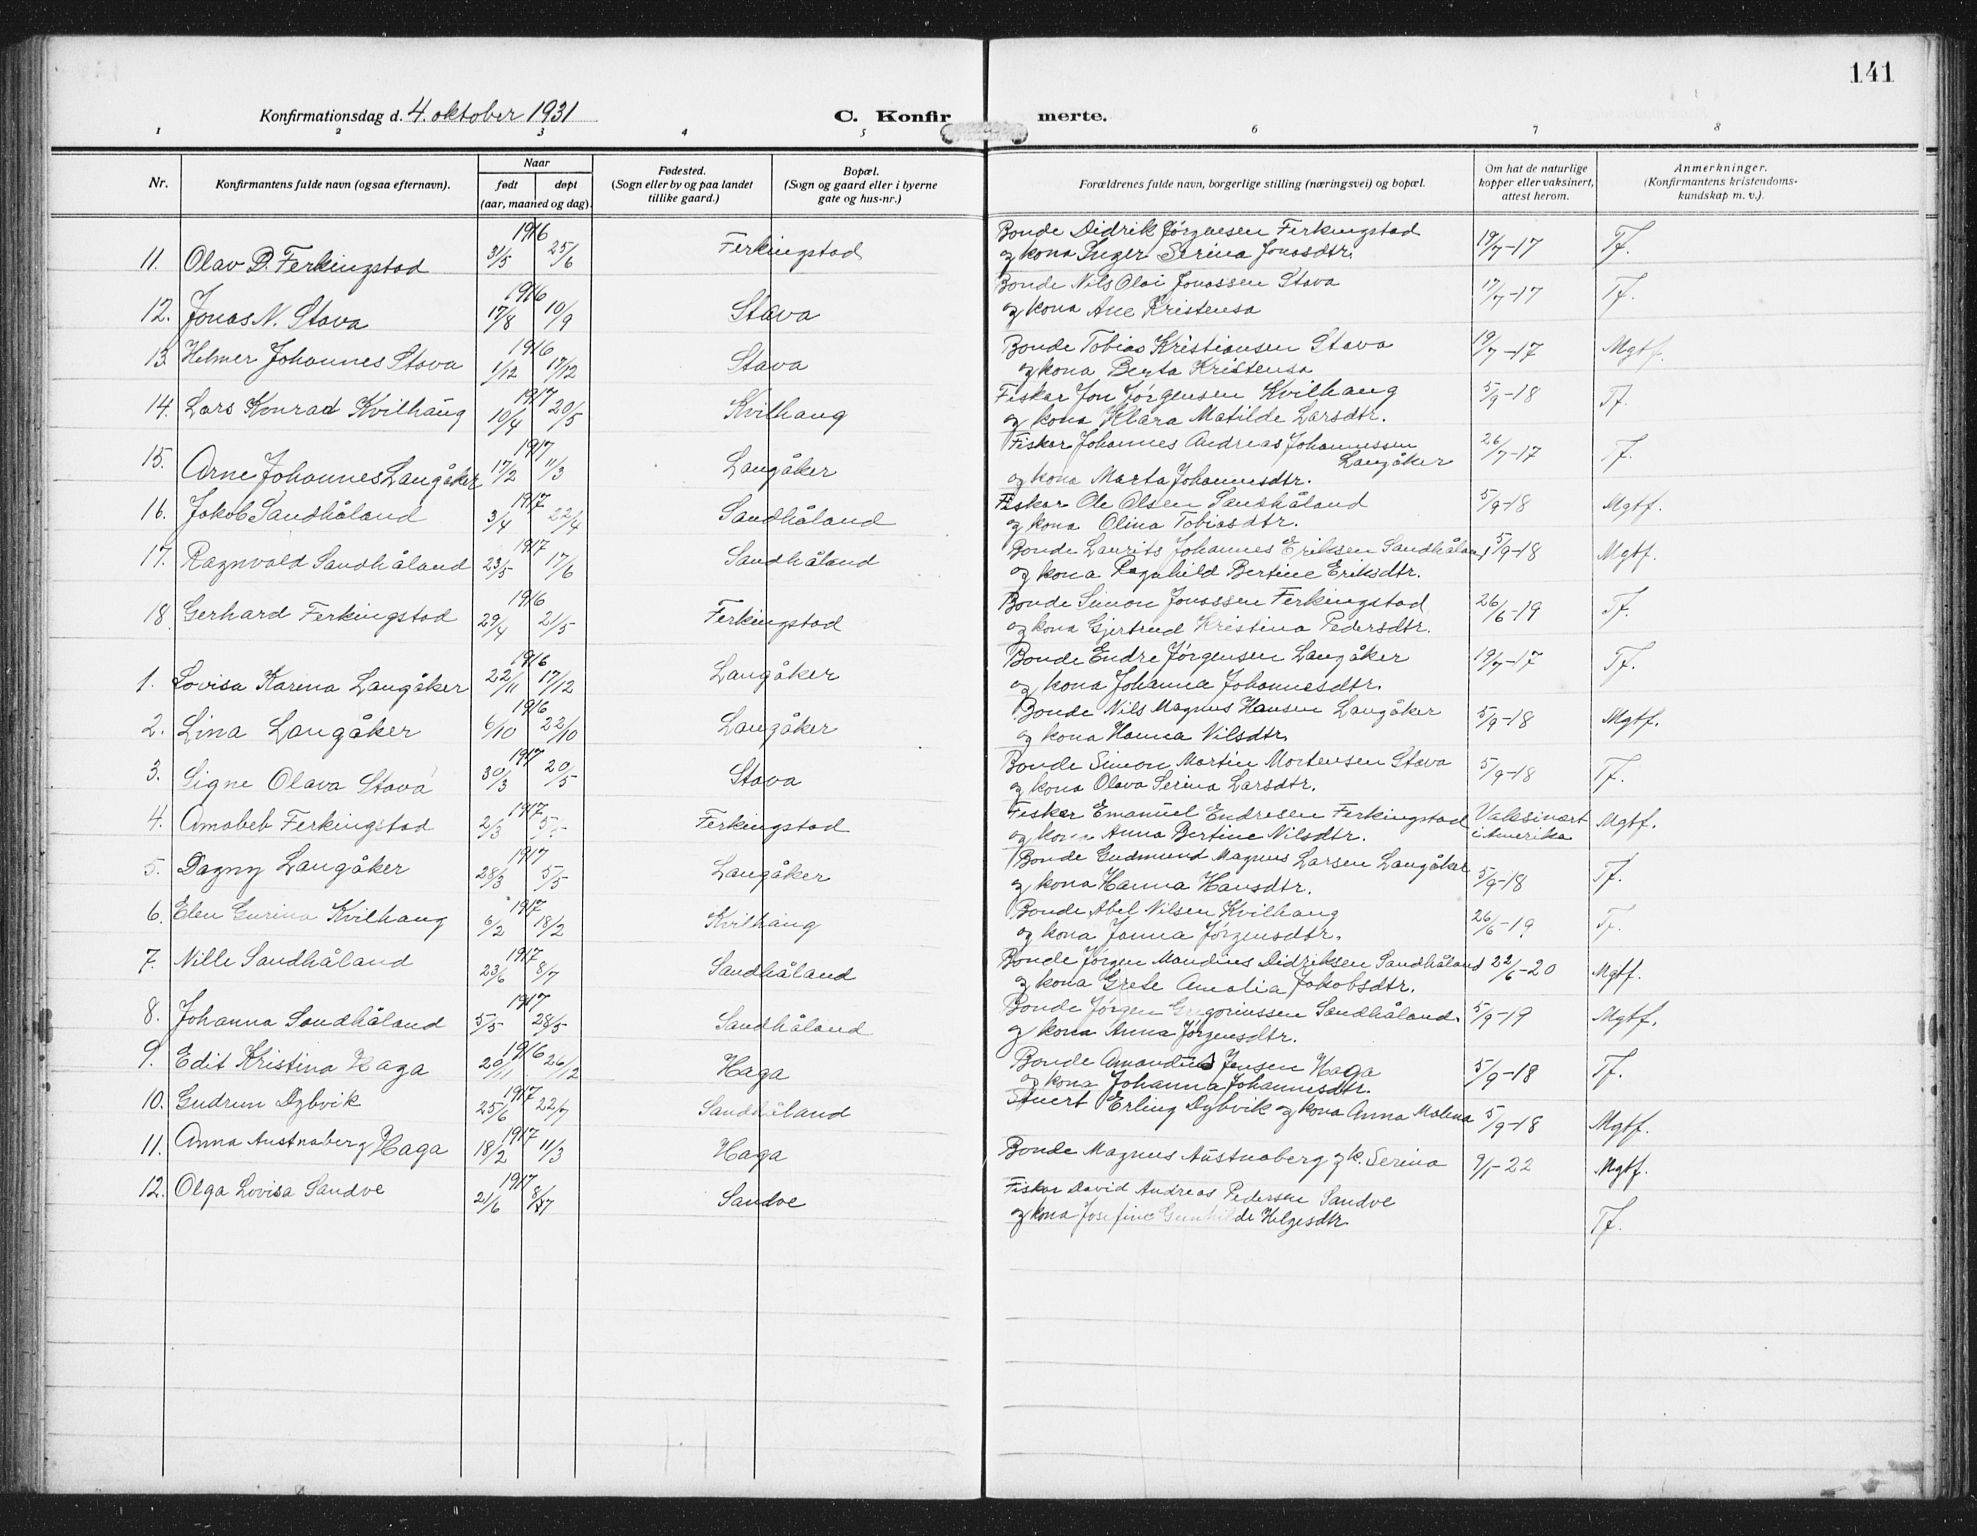 141
Konfirmationsdag d. 4. oktober 1931
C. Konfirmerte.
1 2 3 4 5 6 7 8
Nr.
Konfirmantens fulde navn (ogsaa efternavn).
Naar
født
døpt
(aar, maaned og dag).
Fødested.
(Sogn eller by og paa landet
tillike gaard.)
Bopæl.
(Sogn og gaard eller i byerne
gate og hus-nr.)
Forældrenes fulde navn, borgerlige stilling (næringsvei) og bopæl.
Om hat de naturlige
kopper eller vaksinert,
attest herom.
Anmerkninger.
(Konfirmantens kristendoms-
kundskap m. v.).
1916 Bonde Didrik Jørgensen Ferkingstad
11. Olav D. Ferkingstad 31/5 25/6 Ferkingstad og kona Inger Serina Jonasdtr. 19/7-17 Tf.
1916 Bonde Nils Olai Jonassen Stava
12. Jonas N. Stava 17/8 10/9 Stava og kona Ane Kristensa 17/7-17 Tf.
1916 Bonde Tobias Kristiansen Stava
13. Helmer Johannes Stava 1/12 17/12 Stava og kona Berta Kristensa 19/7-17 Mgtf.
1917 Fiskar Jon Jørgensen Kvilhaug
14. Lars Konrad Kvilhaug 10/4 20/5 Kvilhaug og kona Klara Matilde Larsdtr. 5/9-18 Tf.
1917 Fiskar Johannes Andreas Johannessen
Langåker
15. Arne Johannes Langåker 17/2 11/3 Langåker og kona Marta Johannesdtr. 26/7-17 Tf.
1917 Fiskar Ole Olsen Sandhåland
16. Jakob Sandhåland 3/4 22/4 Sandhåland og kona Olina Tobiasdtr. 5/9-18 Mgtf.
1917 Bonde Laurits Johannes Eriksen Sandhåland
17. Ragnvald Sandhåland 23/5 17/6 Sandhåland og kona Ragnhild Bertine Eriksdtr. 5/9-18 Mgtf.
1916 Bonde Simon Jonassen Ferkingstad
18. Gerhard Ferkingstad 29/4 21/5 Ferkingstad og kona Gjertrud Kristina Pedersdtr. 26/6-19 Tf.
1916 Bonde Endre Jørgensen Langåker
1. Lovisa Karina Langåker 22/11 17/12 Langåker og kona Johanna Johannesdtr. 19/7-17 Tf.
1916 Bonde Nils Magnus Hansen Langåker
2. Lina Langåker 6/10 22/10 Langåker og kona Hanna Nilsdtr. 5/9-18 Mgtf.
1917 Bonde Simon Martin Mortensen Stava
3. Signe Olava Stava 30/3 20/5 Stava og kona Olava Serina Larsdtr. 5/9-18 Tf.
1917 Fiskar Emanuel Endresen Ferkingstad Vaksinert
4. Amabeb Ferkingstad 2/3 5/5 Ferkingstad og kona Anna Bertine Nilsdtr. i Amerika Mgtf.
1917 Bonde Gudmund Magnus Larsen Langåker
5. Dagny Langåker 28/3 5/5 Langåker og kona Hanna Hansdtr. 5/9-18 Tf.
1917 Bonde Abel Nilsen Kvilhaug
6. Elen Gurina Kvilhaug 6/2 18/2 Kvilhaug og kona Janna Jørgensdtr. 26/6-19 Tf.
1917 Bonde Jørgen Mandius Didriksen Sandhåland
7. Nille Sandhåland 23/6 8/7 Sandhåland og kona Grete Amalia Jakobsdtr. 22/6-20 Mgtf.
1917 Bonde Jørgen Gregoriussen Sandhåland.
8. Johanna Sandhåland 5/5 28/5 Sandhåland og kona Anna Jørgensdtr. 5/9-19 Mgtf.
1916 Bonde Amandus Jensen Haga
9. Edit Kristina Haga 20/11 26/12 Haga og kona Johanna Johannesdtr. 5/9-18 Tf.
1917
10. Gudrun Dybvik 25/6 22/7 Sandhåland Stuert Erling Dybvik og kona Anna Malena 5/9-18 Mgtf.
1917
11. Anna Austnaberg Haga 18/2 11/3 Haga Bonde Magnus Austnaberg og k. Serina 9/1-22 Mgtf.
1917 Fiskar David Andreas Pedersen Sandve
12. Olga Lovisa Sandve 21/6 8/7 Sandve og kona Josefine Gunhilde Helgesdtr Tf.